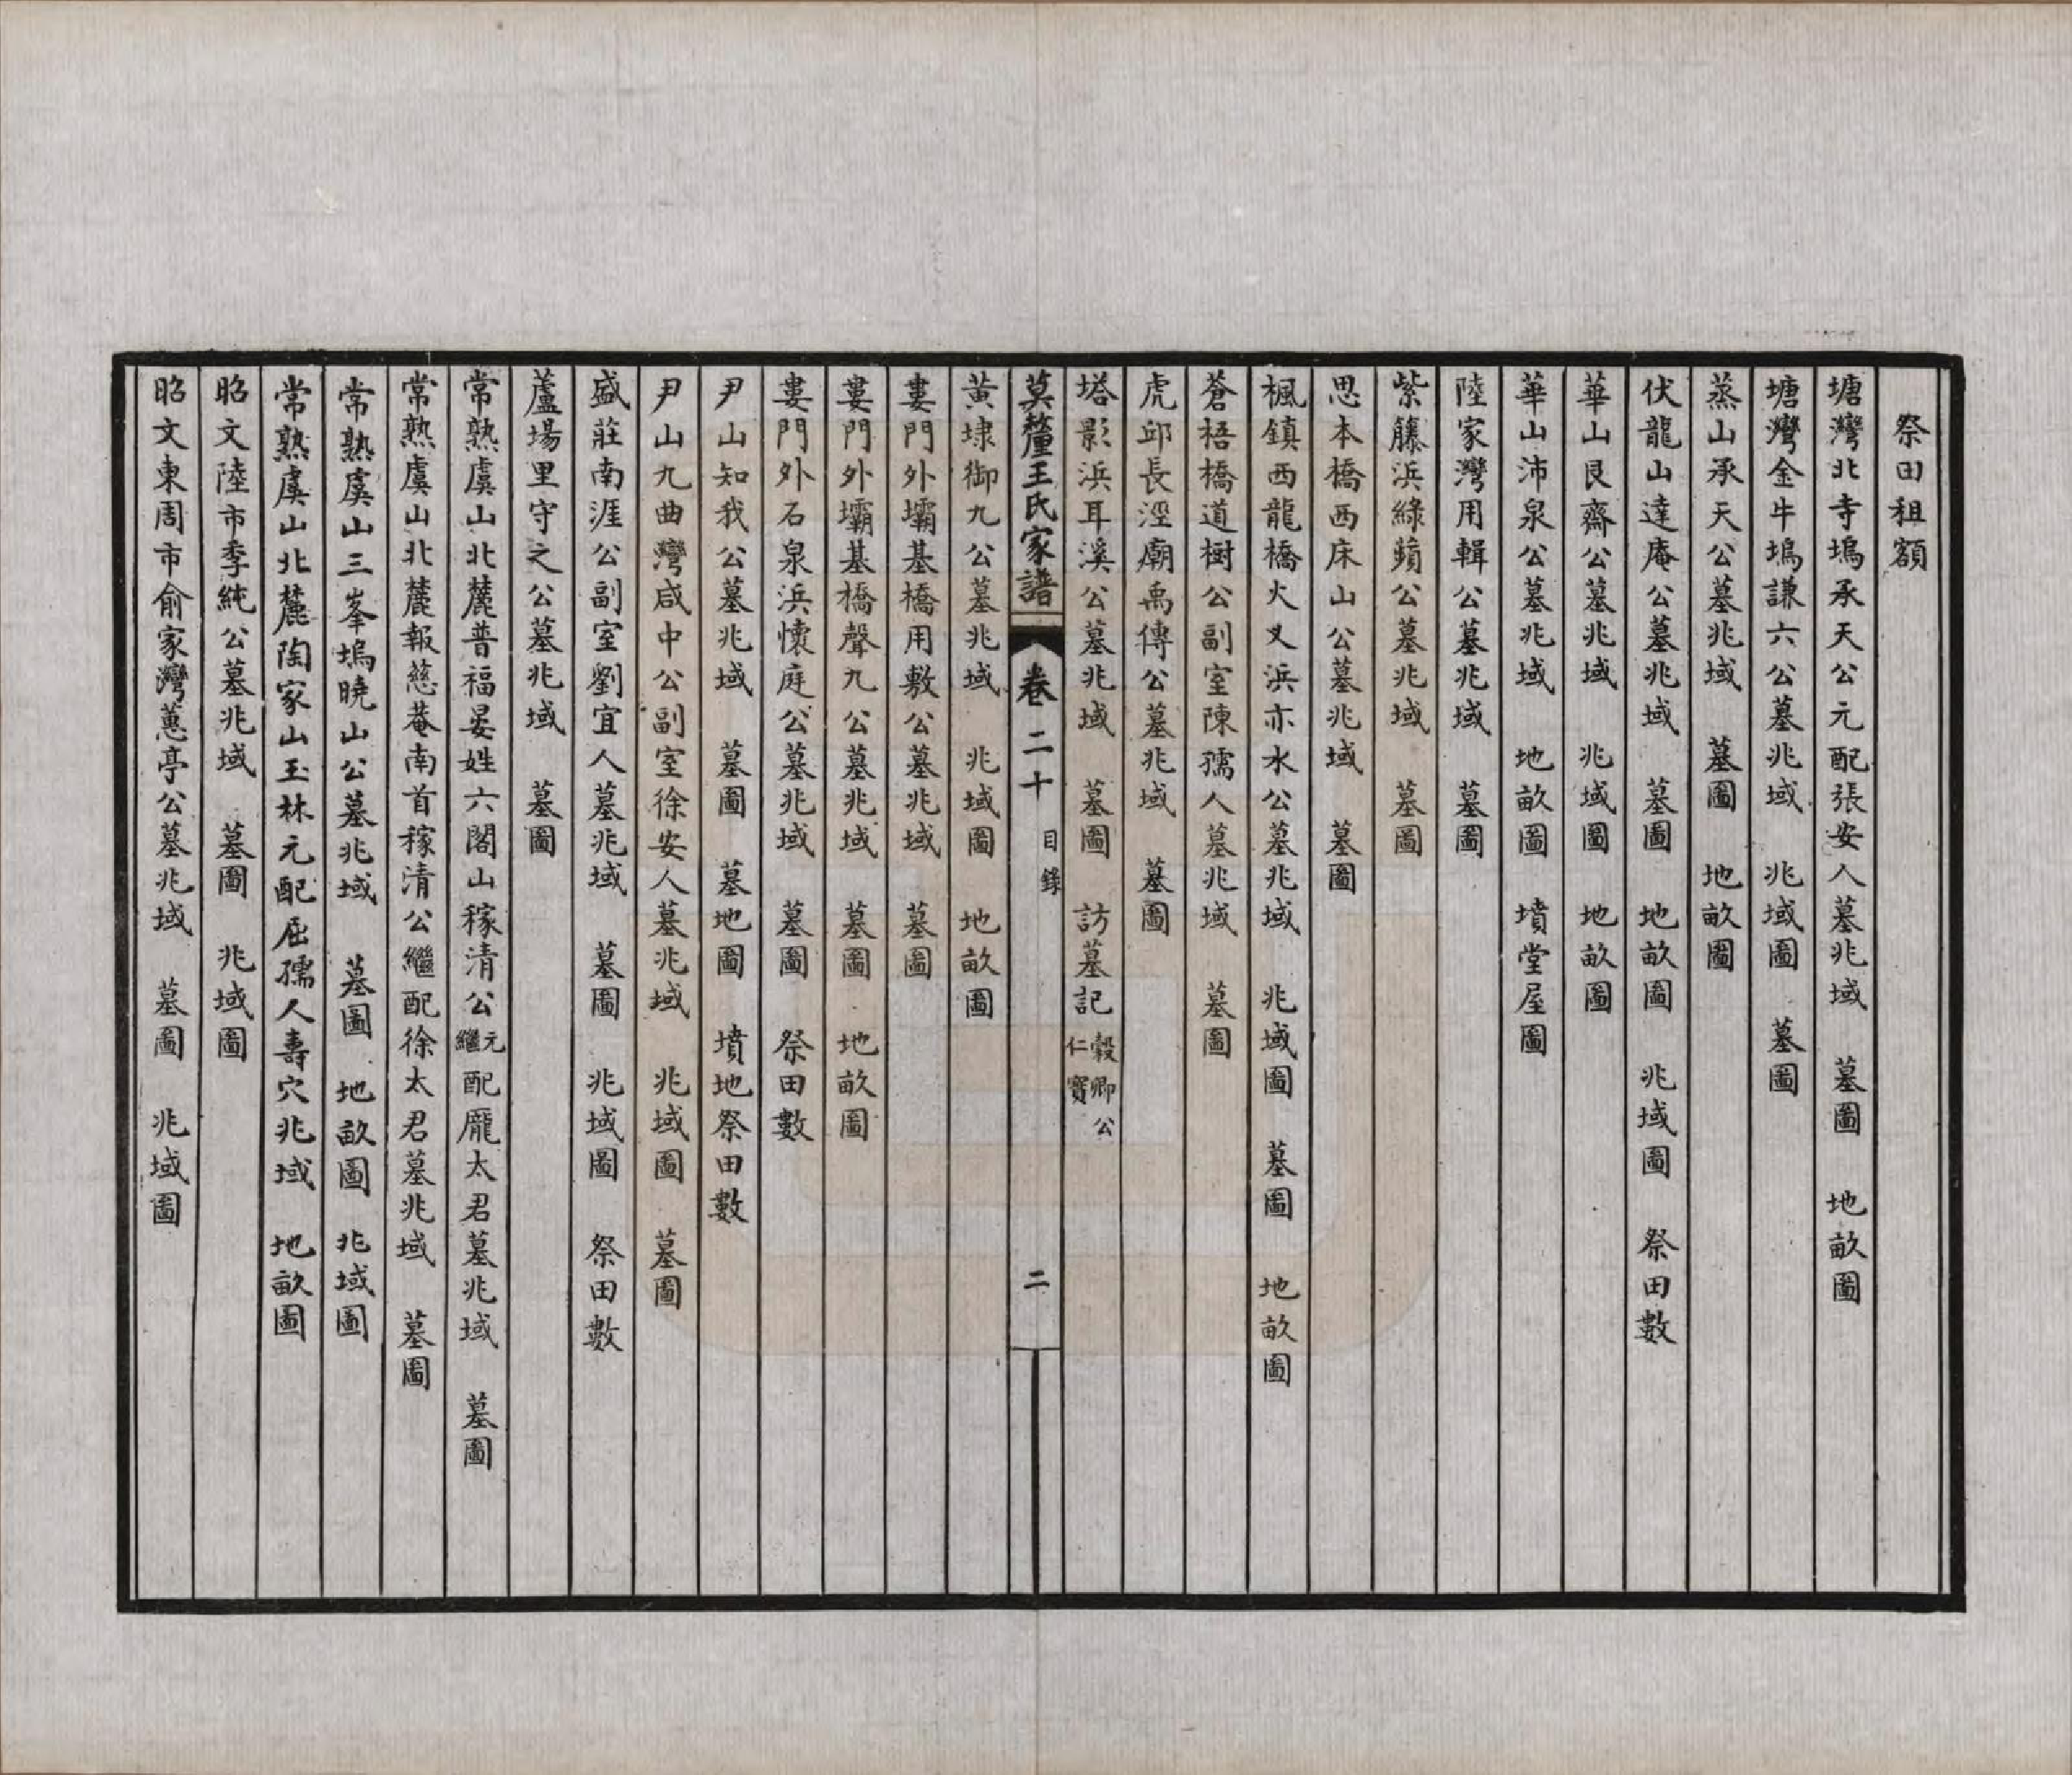 祭田租額
塘灣北寺塢承天公元配張安人墓兆域　墓圖　地畝圖
塘灣金牛塢謙六公墓兆域　兆域圖　墓圖
蒸山承天公墓兆域　墓圖　地畝圖
伏龍山達庵公墓兆域　墓圖　地畝圖　兆域圖　祭田數
華山艮齋公墓兆域　兆域圖　地畝圖
華山沛泉公墓兆域　地畝圖　墳堂屋圖
陸家灣用輯公墓兆域　墓圖
紫籐浜綠蘋公墓兆域　墓圖
思本橋西床山公墓兆域　墓圖
楓鎮西龍橋火叉浜亦水公墓兆域　兆域圖　墓圖　地畝圖
蒼梧橋道樹公副室陳孺人墓兆域　墓圖
虎邱長涇廟禹傳公墓兆域　墓圖
塔影浜耳溪公墓兆域　墓圖　訪墓記穀卿公仁寶
莫釐王氏家譜　卷二十　目錄　二
黃埭御九公墓兆域　兆域圖　地畝圖
婁門外壩基橋用敷公墓兆域　墓圖
婁門外壩基橋聲九公墓兆域　墓圖　地畝圖
婁門外石泉浜懷庭公墓兆域　墓圖　祭田數
尹山知我公墓兆域　墓圖　墓地圖　墳地祭田數
尹山九曲灣咸中公副室徐安人墓兆域　兆域圖　墓圖
盛莊南涯公副室劉宜人墓兆域　墓圖　兆域圖　祭田數
蘆場里守之公墓兆域　墓圖
常熟虞山北麓普福晏姓六閣山稼清公元繼配龐太君墓兆域　墓圖
常熟虞山北麓報慈菴南首稼清公繼配徐太君墓兆域　墓圖
常熟虞山三峯塢曉山公墓兆域　墓圖　地畝圖　兆域圖
常熟虞山北麓陶家山玉林元配屈孺人壽穴兆域　地畝圖
昭文陸市季純公墓兆域　墓圖　兆域圖
昭文東周市俞家灣蕙亭公墓兆域　墓圖　兆域圖